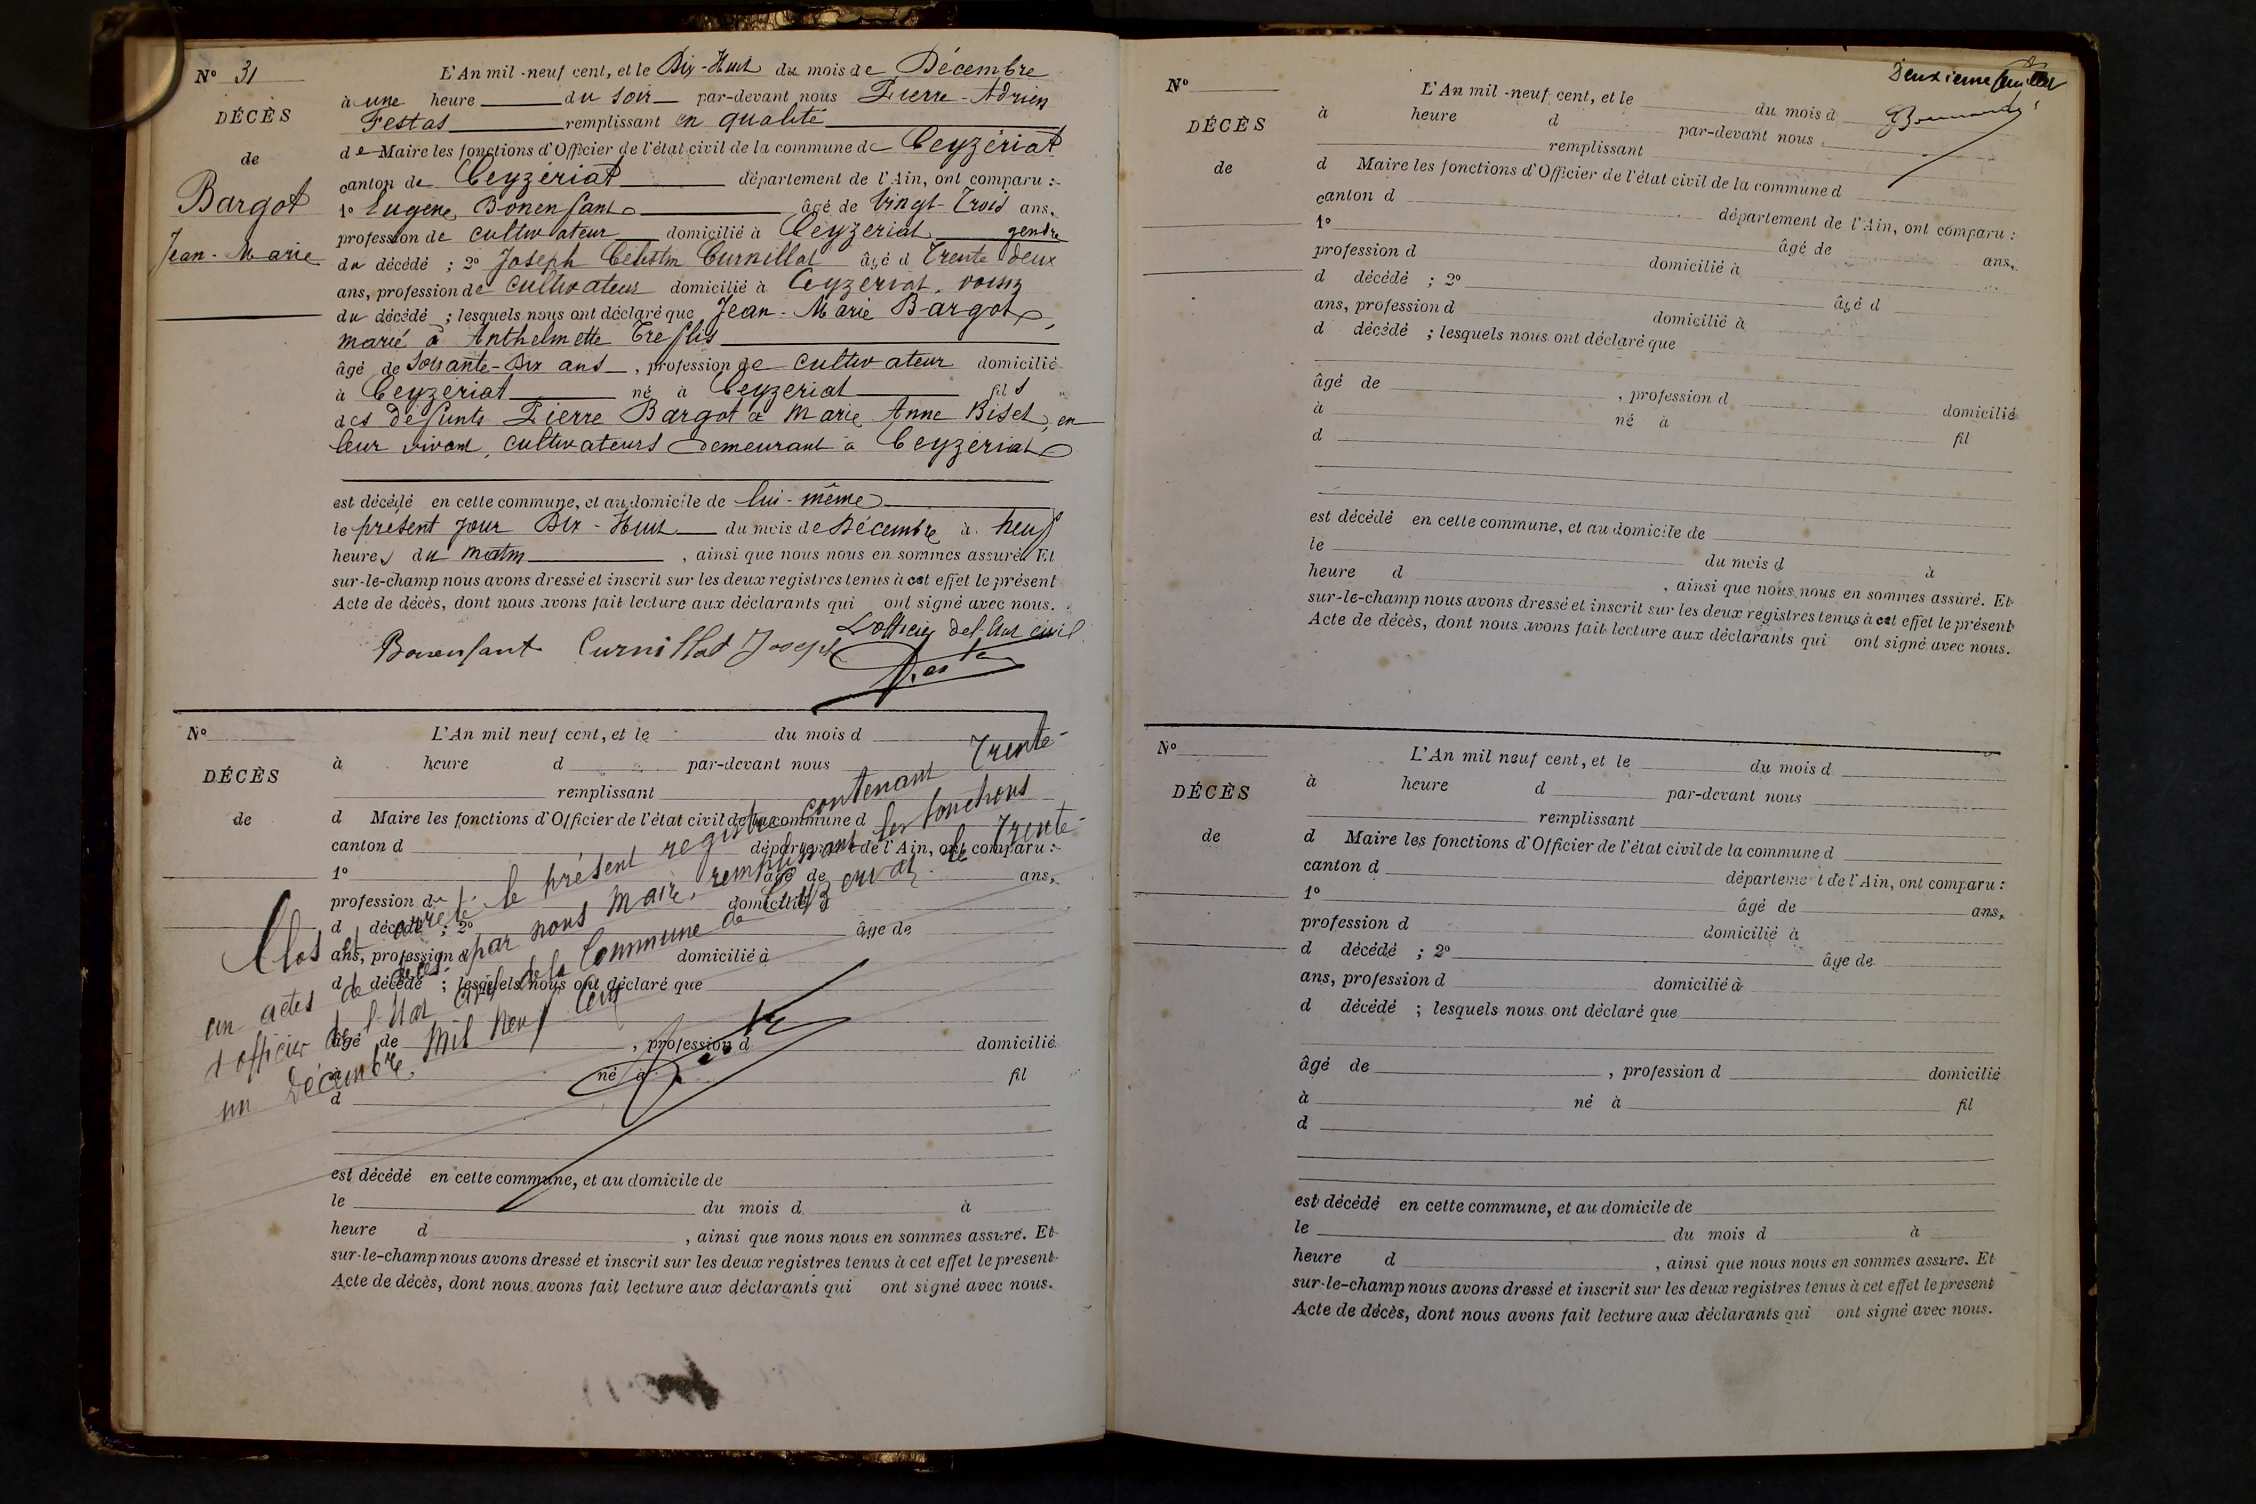 N° 31
DÉCÈS
de
Bargot
Jean-Marie
L'An mil-neuf cent, et le Dix-Huit du mois de Décembre
à une heure du soir par-devant nous Pierre-Adrien
Festas remplissant en qualité
de Maire les fonctions d'Officier de l'état civil de la commune de Ceyzériat
canton de Ceyzériat département de l'Ain, ont comparu :
1° Eugène Bonenfant âgé de Vingt-Trois ans,
profession de cultivateur domicilié à Ceyzeriat gendre
du décédé ; 2° Joseph Célestin Curnillat âgé d Trente deux
ans, profession de cultivateur domicilié à Ceyzeriat, voisin
du décédé ; lesquels nous ont déclaré que Jean-Marie Bargot,
marié à Anthelmette Treflis
âgé de Soixante-Dix ans, profession de cultivateur domicilié
à Ceyzériat né à Ceyzeriat fils
des défunts Pierre Bargot et Marie Anne Biset, en
leur vivant, cultivateurs demeurant à Ceyzeriat
est décédé en cette commune, et au domicile de lui-même
le présent jour Dix-Huit du mois de Décembre à neuf
heures du matin, ainsi que nous nous en sommes assuré. Et
sur-le-champ nous avons dressé et inscrit sur les deux registres tenus à cet effet le présent
Acte de décès, dont nous avons fait lecture aux déclarants qui ont signé avec nous.
L'officier de l'état civil
Bonenfant Curnillat Joseph
N°
DÉCÈS
de
L'An mil neuf cent, et le du mois d
à heure d par-devant nous
remplissant
d Maire les fonctions d'Officier de l'état civil de la commune d
canton d département de l'Ain, ont comparu :
1° âgé de ans,
profession d domicilié à
d décédé ; 2° âge de
ans, profession d domicilié à
d décédé ; lesquels nous ont déclaré que
âgé de , profession d domicilié
à né à fil
d
Clos et arrêté le présent registre contenant Trente-
un actes de décès par nous Maire, remplissant les fonctions
d'officier de l'état civil de la Commune de Ceyzeriat le Trente-
un Décembre, Mil Neuf Cent
est décédé en cette commune, et au domicile de
le du mois d à
heure d , ainsi que nous nous en sommes assuré. Et
sur-le-champ nous avons dressé et inscrit sur les deux registres tenus à cet effet le present
Acte de décès, dont nous avons fait lecture aux déclarants qui ont signé avec nous.
Deuxième feuillet
N°
DÉCÈS
de
L'An mil-neuf cent, et le du mois d
à heure d par-devant nous
remplissant
d Maire les fonctions d'Officier de l'état civil de la commune d
canton d département de l'Ain, ont comparu :
1° âgé de ans,
profession d domicilié à
d décédé ; 2° âgé d
ans, profession d domicilié à
d décédé ; lesquels nous ont déclaré que
âgé de , profession d domicilié
à né à fil
d
est décédé en cette commune, et au domicile de
le du mois d à
heure d , ainsi que nous nous en sommes assuré. Et
sur-le-champ nous avons dressé et inscrit sur les deux registres tenus à cet effet le présent
Acte de décès, dont nous avons fait lecture aux déclarants qui ont signé avec nous.
N°
DÉCÈS
de
L'An mil neuf cent, et le du mois d
à heure d par-devant nous
remplissant
d Maire les fonctions d'Officier de l'état civil de la commune d
canton d département de l'Ain, ont comparu :
1° âgé de ans,
profession d domicilié à
d décédé ; 2° âge de
ans, profession d domicilié à
d décédé ; lesquels nous ont déclaré que
âgé de , profession d domicilié
à né à fil
d
est décédé en cette commune, et au domicile de
le du mois d à
heure d , ainsi que nous nous en sommes assure. Et
sur-le-champ nous avons dressé et inscrit sur les deux registres tenus à cet effet le present
Acte de décès, dont nous avons fait lecture aux déclarants qui ont signé avec nous.